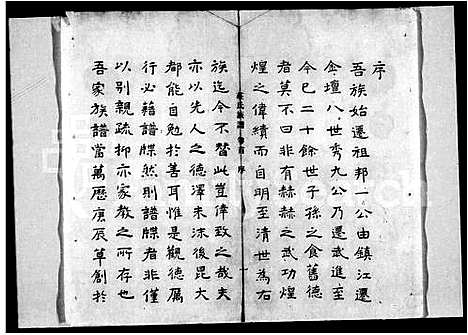 序
吾族始遷祖邦一公由鎮江遷
金壇八世秀九公乃遷武進至
今已二十餘世子孫之食舊德
者莫不曰非有赫赫之武功煌
煌之偉績而自明至清世為右
族迄今不替此豈偉致之哉夫
亦以先人之德澤未沫後昆大
都能自勉於善耳惟是觀德厲
行必藉譜牒然則譜牒者非僅
以別親疏抑亦家教之所存也
吾家族譜當萬歷庚辰草創於
氏族譜 卷首 序